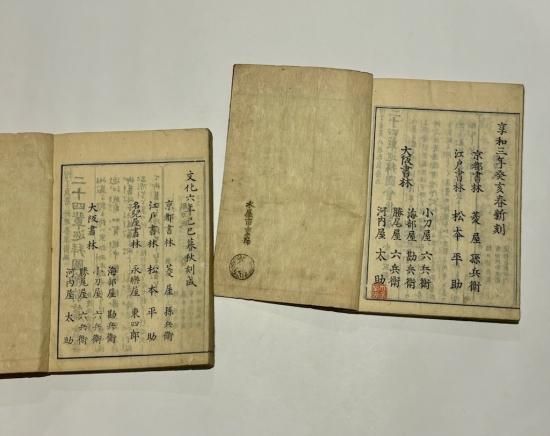 享和三年癸亥春新刻
京都書林 菱屋 孫兵衛
江戸書林 松本 平助
大阪書林
小刀屋 六兵衛
海部屋 勘兵衛
勝尾屋 六兵衛
河内屋 太助
文化六年己巳暮秋刻成
京都書林 菱屋 孫兵衛
江戸書林 松本 平助
書林 永樂屋 東四郎
大阪書林
海部屋 勘兵衛
小刀屋 六兵衛
勝尾屋 六兵衛
河内屋 太助